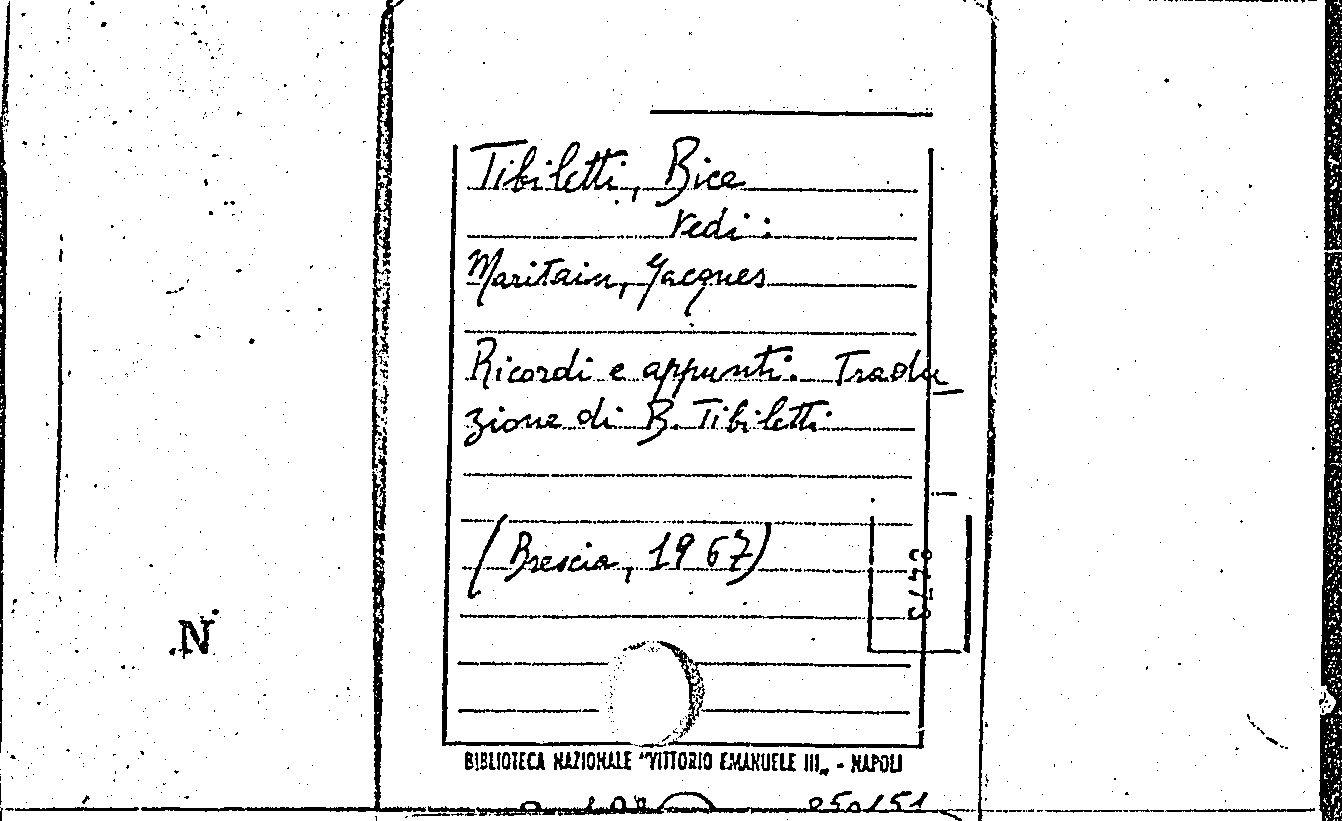 Tibiletti, Bice
vedi:
Maritain, Jacques
Ricordi e appunti. Tradu_
zione di B. Tibiletti
(Brescia, 1967)
N.
BIBLIOTECA NAZIONALE "VITTORIO EMANUELE III„ - NAPOLI